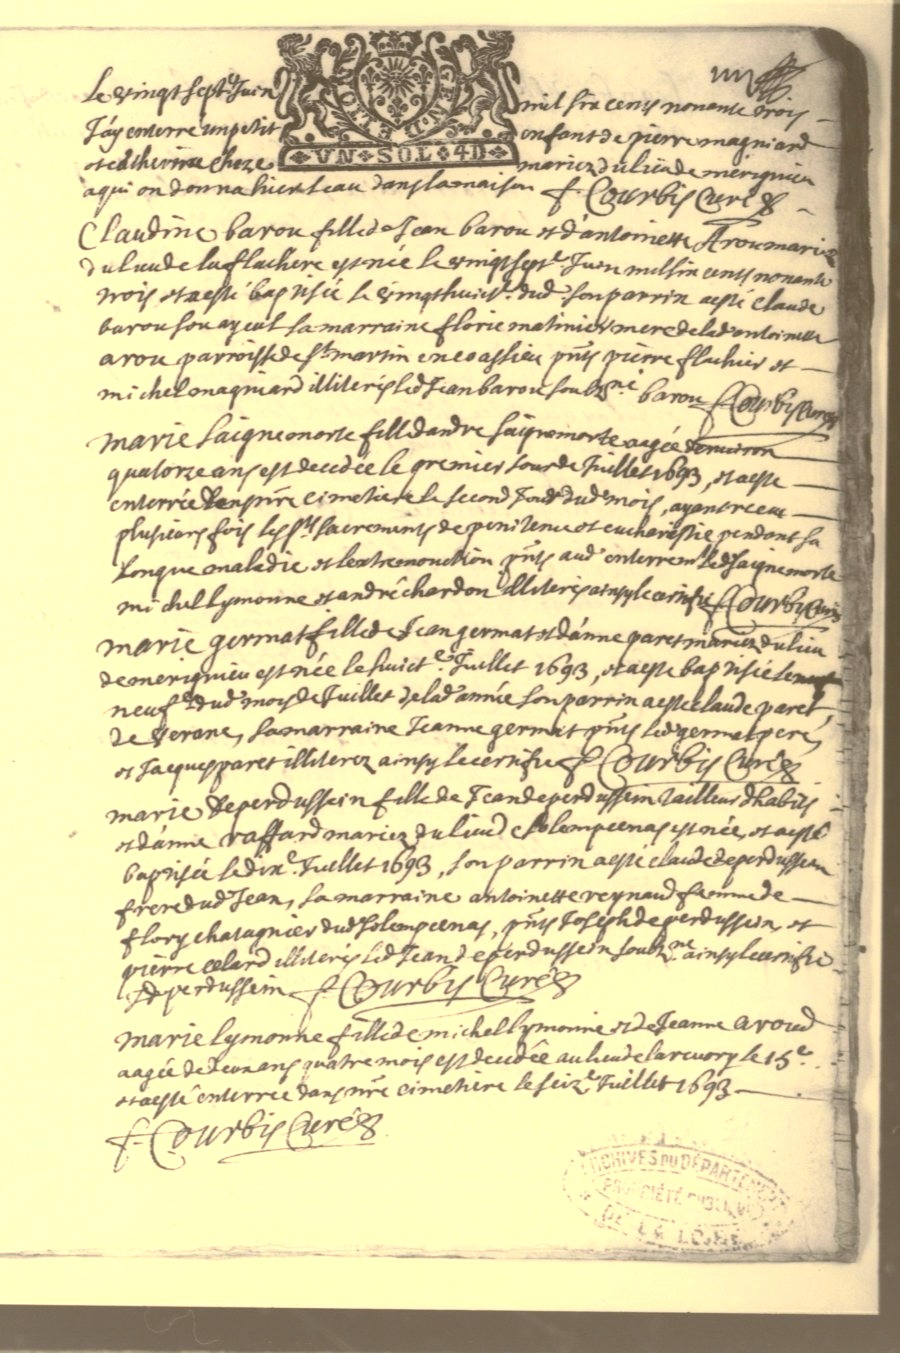 Le vingt sept.e Juin mil six cens nonante trois
J'ay enterré un petit enfant de pierre magniard
et catherine cheze mariez du lieu de merignieu
a qui on donna hier leau dans la maison f. Courbis Curé
GEN. D. LYON
VN SOL 4D
Claudine barou fille de Jean barou et d'antoinette Arou mariez
du lieu de la flachere est née le vingt sept.e Juin mil six cens nonante
trois et a esté baptisée le vingt huict.e dud. son parrin a esté claude
barou son ayeul sa marraine florie matinier mere de lad. antoinette
arou parroisse de st martin en coaslieu pnts pierre fluhier et
michel magniard illiterés led Jean barou soubzné barou f. Courbis Curé
marie saignemorte fille d'andre saignemorte aagée d'environ
quatorze ans est decedée le premier jour de Juillet 1693, et a este
enterrée dens nre cimetiere le second jour dud mois, ayant receu
plusieurs fois les sts sacrements de penitence et eucharistie pendant sa
longue maladie et lextremonction pnts aud enterremt led saignemorte
michel lymonne et andré chardon illiterés ainsy le certifie f. Courbis Curé
marie germat fille de Jean germat et d'anne paret mariez du lieu
de merignieu est née le huict.e Juillet 1693, et a este baptisée le
neuf.e dud mois de Juillet de lad année son parrin a este claude paret
de verane, sa marraine Jeanne germat pnts led germat pere,
et Jacques paret illiterez ainsy le certifie f. Courbis Curé
marie deperdussein fille de Jean deperdussein tailleur d'habits
et d'anne raffard mariez du lieu de Colempcenas est née, et a esté
baptisée le dix.e Juillet 1693, son parrin a este claude deperdussein
frere dud Jean, sa marraine antoinette reynaud femme de
flory chatagnier dud Colempcenas, pnts Joseph de perdussein, et
pierre celard illiterés led Jean deperdussein soubzné ainsy le certifie
J de perdussein f. Courbis Curé
marie lymonne fille de michel lymonne et de Jeanne aroud
aagée de deux ans quatre mois est decedée au lieu de larcuory le 15e
et a esté enterrée dans nre cimetiere le seize.e Juillet 1693
f. Courbis Curé
ARCHIVES DU DÉPARTEMENT
PROPRIÉTÉ PUBLIQUE
DE LA LOIRE